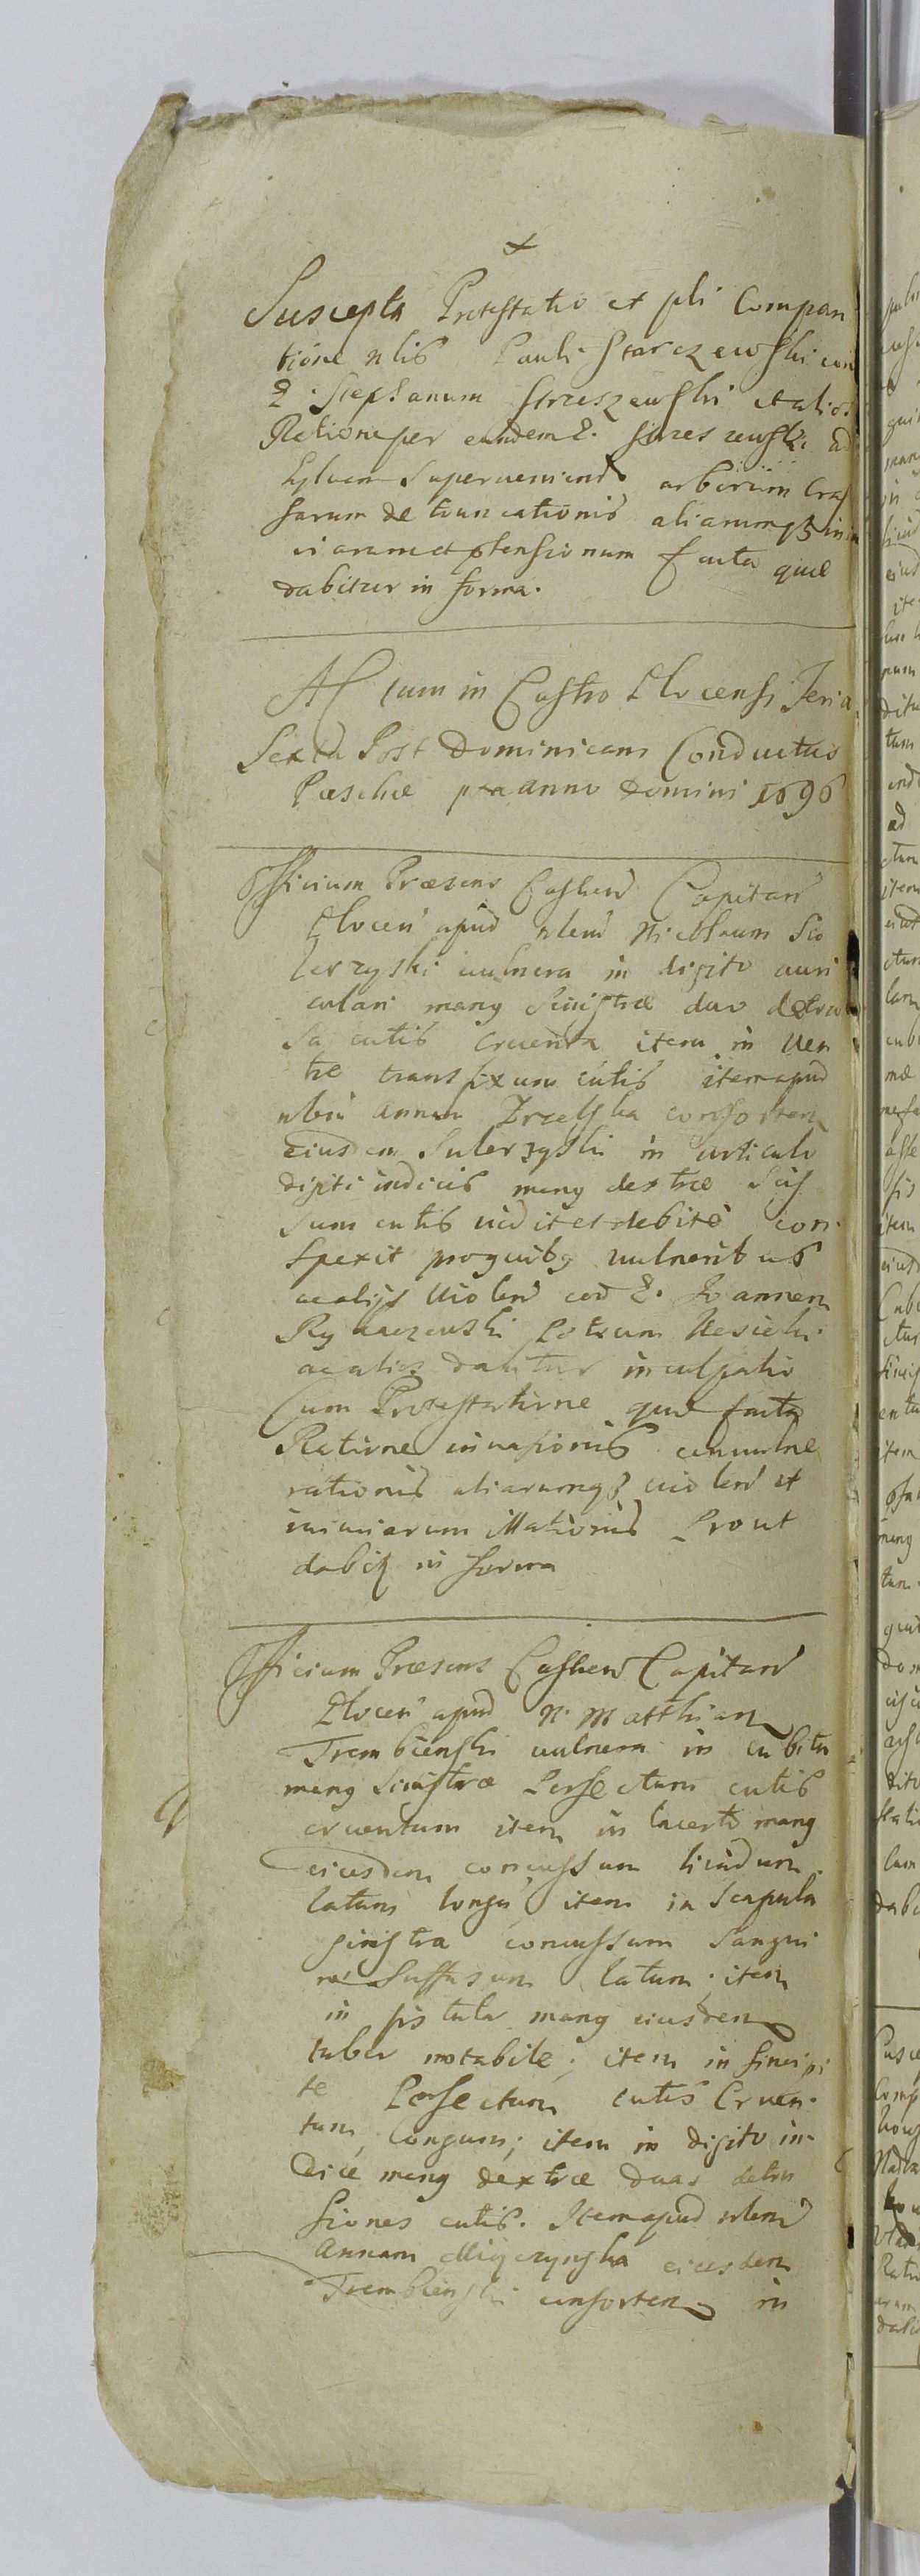 +
Suscepta Protestatio et pli Compari
tione nlis Pauli Starczewski con
G. Stephanum Strzeszewski et alios
Ratione per eundem G. Strzeszewski ad
Sylvam Superveniend arborum Cras
sarum detruncationis aliarumq3 in
iuriarum et offensionum facta quæ
dabitur in forma.
Actum in Castro Plocensi Feria
Sexta Post Dominicam Conductus
Paschæ pxa anno Domini 1696
Officium Præsens Castren Capitan
Plocen apud nlem Nicolaum Su
lerzyski vulnera in digito auri
culari manq Sinistræ duo detru
sa cutis cruenta item in Ven
tre transfixum cutis item apud
nlem Annam consortem
eiusdem Sulerzyski in articulo
digiti indicis manq dextræ Scis
sum cutis vidit et debite con
spexit pro quibq vulneribus
ac alijs violen eod G. Joannem
Petrum
ac alios dantur inculpatio
Cum Protestatione quæ facta
Ratione invasionis convulne
rationis aliarumq3 violen et
iniuriarum illationis Prout
dabit in forma
Officium Præsens Castren Capitan
Plocen apud N. Matthiam
Trembienski vulnera in cubitu
manq Sinistræ Persectum cutis
cruentum item in lacerto manq
eiusdem concussum lividum
latum longu item in Scapula
sinistra concussum Sangui
ne Suffusum latum; item
in fistula manq eiusdem
tuber notabile; item in sincipi
te Persectum cutis Cruen
tum, longum; item in digito in
dice manq dextræ duas detru
siones cutis. Item apud nlem
Annam eiusdem
Trembienski consortem in